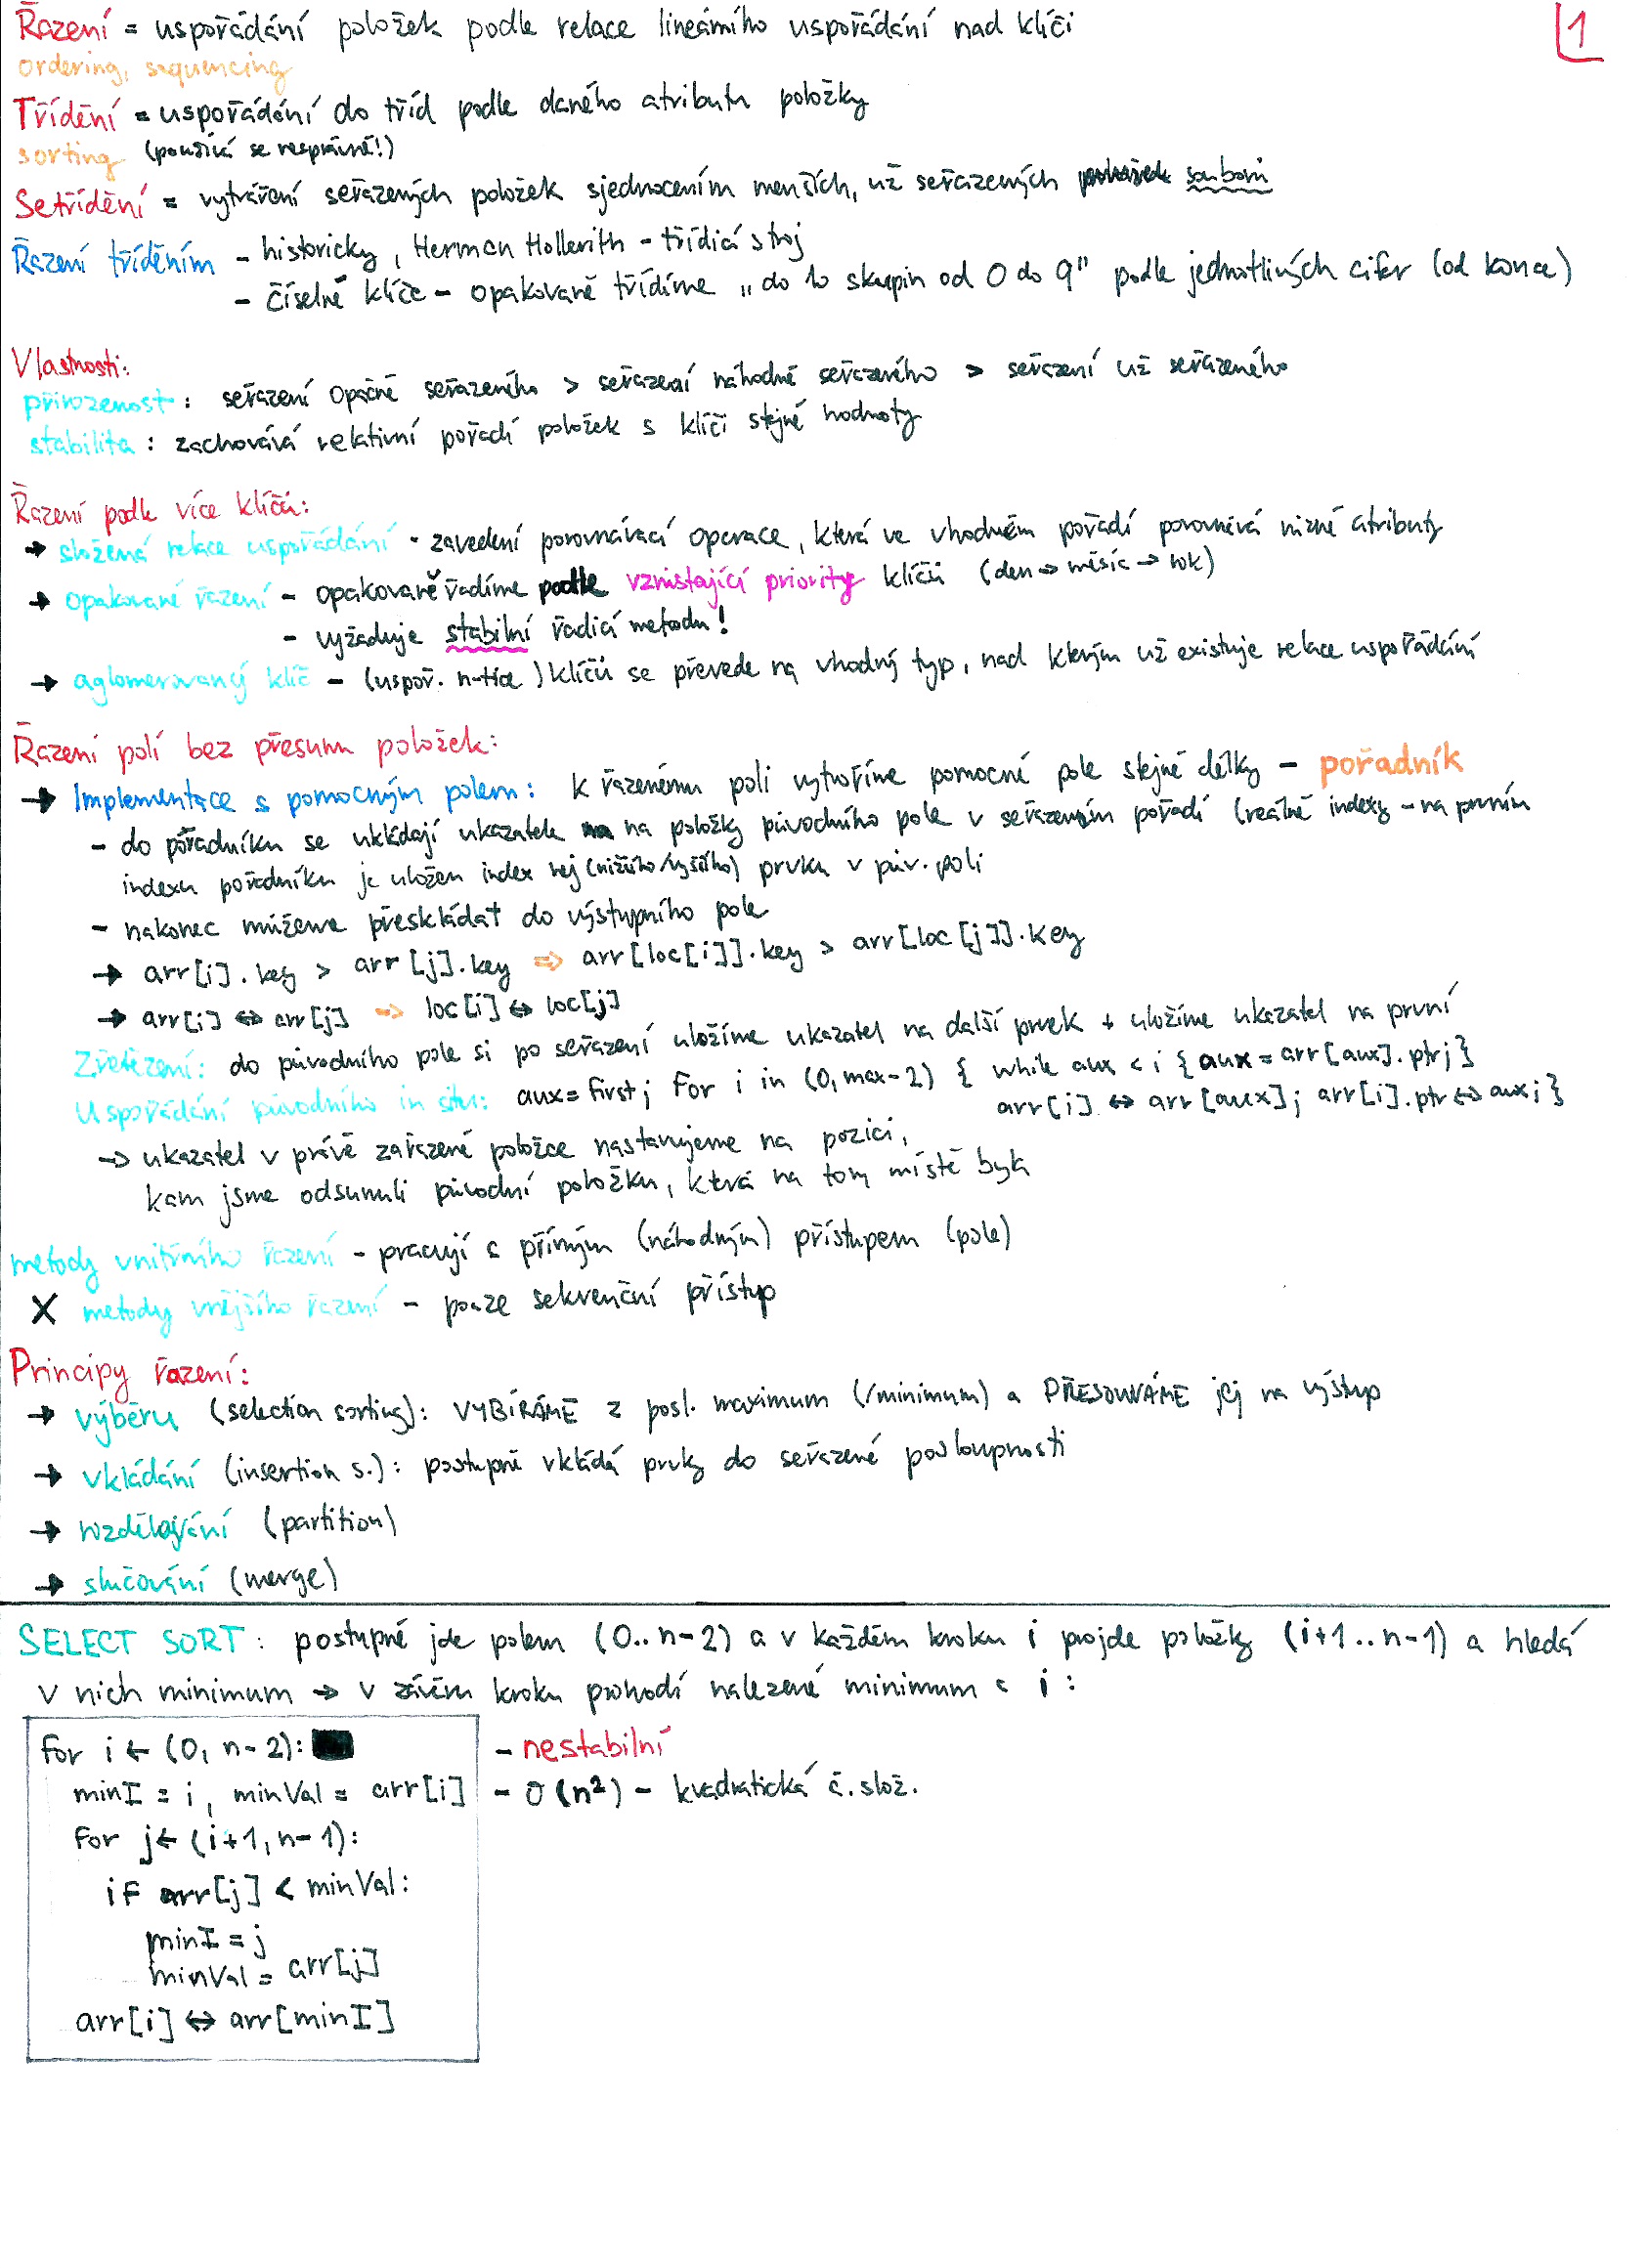 Řazení = uspořádání položek podle relace lineárního uspořádání nad klíči
1
ordering, sequencing
Třídění = uspořádání do tříd podle daného atributu položky
sorting (používá se nesprávně!)
Setřídění = vytváření seřazených položek sjednocením menších, už seřazených souborů
Řazení tříděním - historicky, Herman Hollerith - třídicí stroj
- číselné klíče - opakovaně třídíme „do 10 skupin od 0 do 9" podle jednotlivých cifer (od konce)
Vlastnosti:
přirozenost: seřazení opačně seřazeného > seřazení náhodně seřazeného > seřazení už seřazeného
stabilita: zachovává relativní pořadí položek s klíči stejné hodnoty
Řazení podle více klíčů:
→ složená relace uspořádání - zavedení porovnávací operace, která ve vhodném pořadí porovnává různé atributy
→ opakované řazení - opakovaně řadíme podle vzrůstající priority klíčů (den → měsíc → rok)
- vyžaduje stabilní řadicí metodu!
→ aglomerovaný klíč - (uspoř. n-tice) klíčů se převede na vhodný typ, nad kterým už existuje relace uspořádání
Řazení polí bez přesunu položek:
→ Implementace s pomocným polem: K řazenému poli vytvoříme pomocné pole stejné délky - pořadník
- do pořadníku se ukládají ukazatele na položky původního pole v seřazeném pořadí (reálně indexy - na prvním
indexu pořadníku je uložen index nej(nižšího/vyššího) prvku v pův. poli
- nakonec můžeme přeskládat do výstupního pole
→ arr[i].key > arr[j].key ⇒ arr[loc[i]].key > arr[loc[j]].key
→ arr[i] ↔ arr[j] ⇒ loc[i] ↔ loc[j]
Zřetězení: do původního pole si po seřazení uložíme ukazatel na další prvek + uložíme ukazatel na první
Uspořádání původního in situ: aux = first; for i in (0, max-2) { while aux < i { aux = arr[aux].ptr; }
arr[i] ↔ arr[aux]; arr[i].ptr ↔ aux; }
→ ukazatel v právě zařazené položce nastavujeme na pozici,
kam jsme odsunuli původní položku, která na tom místě byla
metody vnitřního řazení - pracují s přímým (náhodným) přístupem (pole)
X metody vnějšího řazení - pouze sekvenční přístup
Principy řazení:
→ výběru (selection sorting): VYBÍRÁME z posl. maximum (/minimum) a PŘESOUVÁME jej na výstup
→ vkládání (insertion s.): postupně vkládá prvky do seřazené posloupnosti
→ rozdělování (partition)
→ slučování (merge)
SELECT SORT: postupně jde polem (0..n-2) a v každém kroku i projde položky (i+1..n-1) a hledá
v nich minimum → v závěru kroku prohodí nalezené minimum s i:
for i ← (0, n-2):
- nestabilní
minI = i, minVal = arr[i]
- O(n²) - kvadratická č. slož.
for j ← (i+1, n-1):
if arr[j] < minVal:
minI = j
minVal = arr[j]
arr[i] ↔ arr[minI]